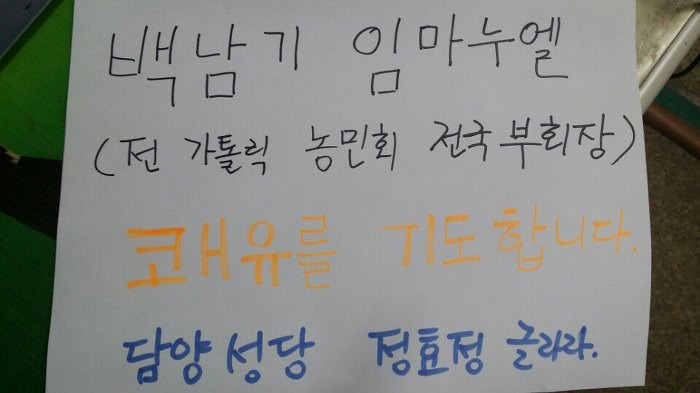 백남기 임마누엘
(전 가톨릭 농민회 전국부회장)
쾌유를 기도합니다.
담양성당 정효정 글라라.